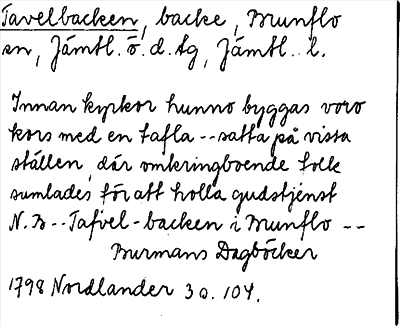 Tavelbacken, backe, Brunflo
sn, Jämtl. ö. d. tg, Jämtl. l.
Innan kyrkor hunno byggas voro
kors med en tafla -- satta på vissa
ställen, där omkringboende folk
samlades för att holla gudstjenst
N.B -- Tafvel-backen i Brunflo --
Burmans Dagböcker
1798 Nordlander 3 o. 104.